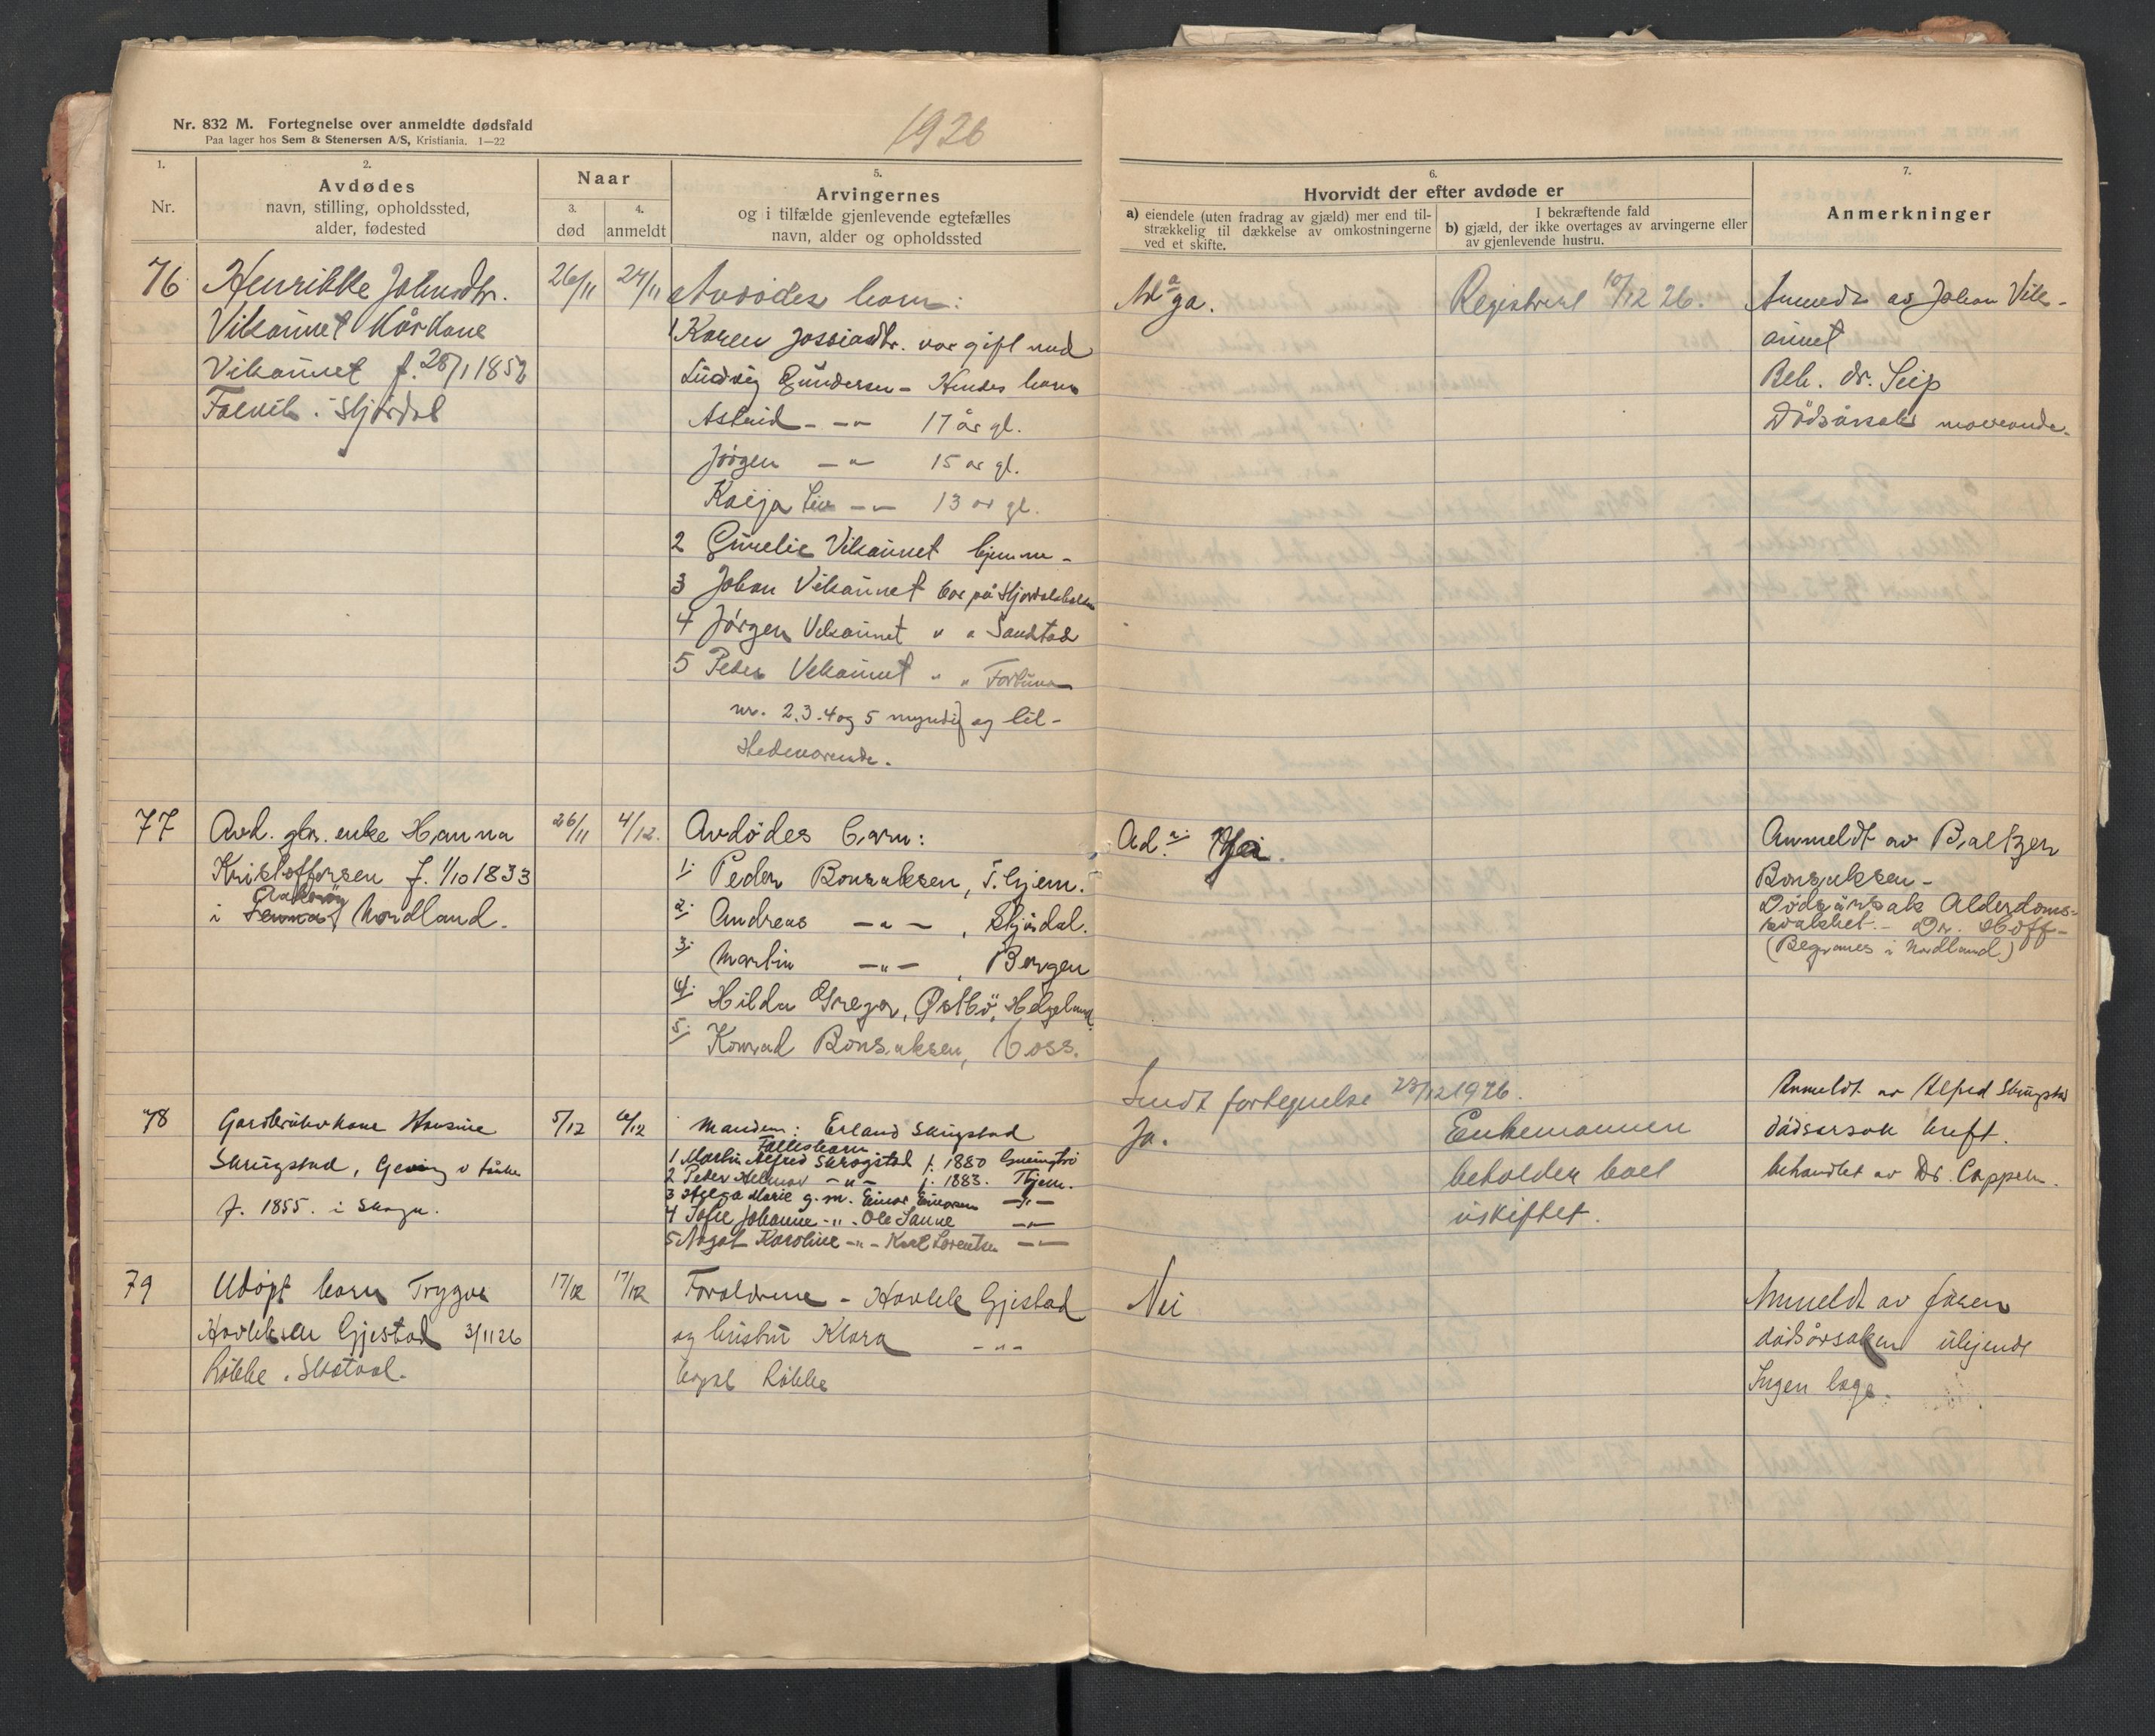 Nr. 832 M. Fortegnelse over anmeldte dødsfald
Paa lager hos Sem & Stenersen A/S, Kristiania. 1—22
1926
1.
Nr.
2.
Avdødes
navn, stilling, opholdssted,
alder, fødested
Naar
3.
død
4.
anmeldt
5.
Arvingernes
og i tilfælde gjenlevende egtefælles
navn, alder og opholdssted
6.
Hvorvidt der efter avdøde er
a) eiendele (uten fradrag av gjæld) mer end til-
strækkelig til dækkelse av omkostningerne
ved et skifte.
I bekræftende fald
b) gjæld, der ikke overtages av arvingerne eller
av gjenlevende hustru.
7.
Anmerkninger
76
Henrikke Johnsdtr.
Vikaunet Kårkone
Vikaunet f. 28/1 1852
Stjørdal
26/11
27/11
Avdødes barn:
1 Karen Jossiasdtr. var gift med
Ludvig Gundersen - Hendes barn
Astrid - -"- 17 år gl.
Jørgen -"- 15 år gl.
Liv -"- 13 år gl.
2 Vikaunet hjemme -
3 Johan Vikaunet bor på Stjørdalshalsen
4 Jørgen Vikaunet " " Sandstad
5 Peder Vikaunet " "
nr. 2.3.4 og 5 myndig og til-
stedeværende.
Ad a ja.
Registrert 10/12 26.
Anmeldt av Johan Vik-
aunet
Beh. dr. Seip
Dødsårsak
77
Avd. gbr. enke Hanna
Kristoffersen f. 1/10 1833
i Nordland.
26/11
4/12.
Avdødes barn:
1: Peder Bonsaksen, T.hjem.
2: Andreas -"- , Stjørdal.
3: Martin -"- , Bergen
4: Hilda Greger, Østbö, Helgeland.
5: Konrad Bonsaksen, Voss.
Ad. a: Ja.
Anmeldt av Baltzer
Bonsaksen -
Dødsårsak Alderdoms-
svakhet. - Dr. Hoff -
(Begraves i Nordland)
Sendt fortegnelse 23/12 1926.
78
Gardbrukerkone Hansine
Skrugstad, Geving
f. 1855. i
5/12
6/12
Manden: Erland Skrugstad
Fællesbarn
1 Martin Alfred Skrogstad f. 1880
2 Peder Helmer -"- f. 1883. Thjem.
3 Helga Marie g. m. Einar Einarsen -"-
4 Sofie Johanne -"- Ole Sanne -"-
5 Aagot Karoline -"- Karl Lorentsen -"-
Ja.
Enkemannen
beholder boet
uskiftet.
Anmeldt av Alfred Skrugstad
dødsårsak kreft.
behandlet av Dr. Cappelen.
79
Udøpt barn Trygve
Havleksen Gjestad 3/11 26
Røkke. Skatval.
17/12
17/12
Foreldrene - Havlek Gjestad
og hustru Klara -"-
bopæl Røkke
Nei
Anmeldt av faren
dødsårsaken ukjendt
Ingen læge.